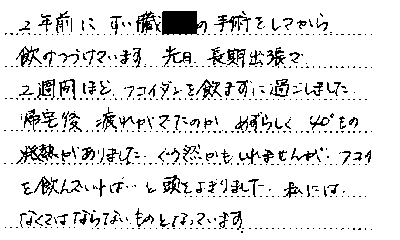 2年前に すい臓 の手術をしてから
飲みつづけています 先日 長期出張で
2週間ほど フコイダンを飲まずに過ごしました
帰宅後 疲れがでたのか めずらしく 40°もの
発熱がありました ぐう然かもしれませんが、フコイ
を飲んでいれば… と頭をよぎりました。私には、
なくてはならないものとなっています